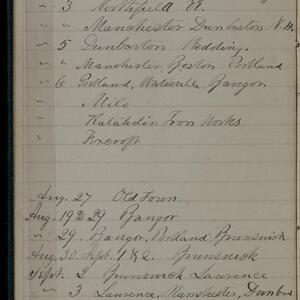 " 3 Northfield &c.
" " Manchester Dunbarton N.H.
" 5 Dunbarton Wedding.
" " Manchester, Boston Portland
" 6 Portland, Waterville, Bangor
" Milo
" Katahdin Iron Works
" Foxcroft
Aug. 27 Old Town
Aug. 19 to 29 Bangor
" 29. Bangor, Portland, Brunswick
Aug. 30. Sept. 1 & 2. Brunswick
Sept. 2 Brunswick Lawrence
" 3 Lawrence, Manchester, Dunbar